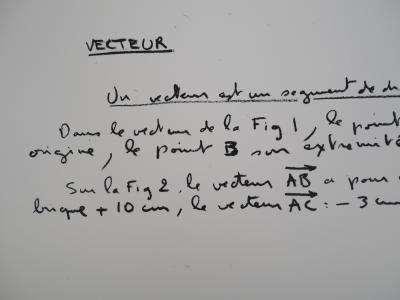 VECTEUR
Un vecteur est un segment de
Dans le vecteur de la Fig 1, le point
origine, le point B son extrémité
Sur la Fig 2, le vecteur AB a pour
brique + 10 cm, le vecteur AC : - 3 cm